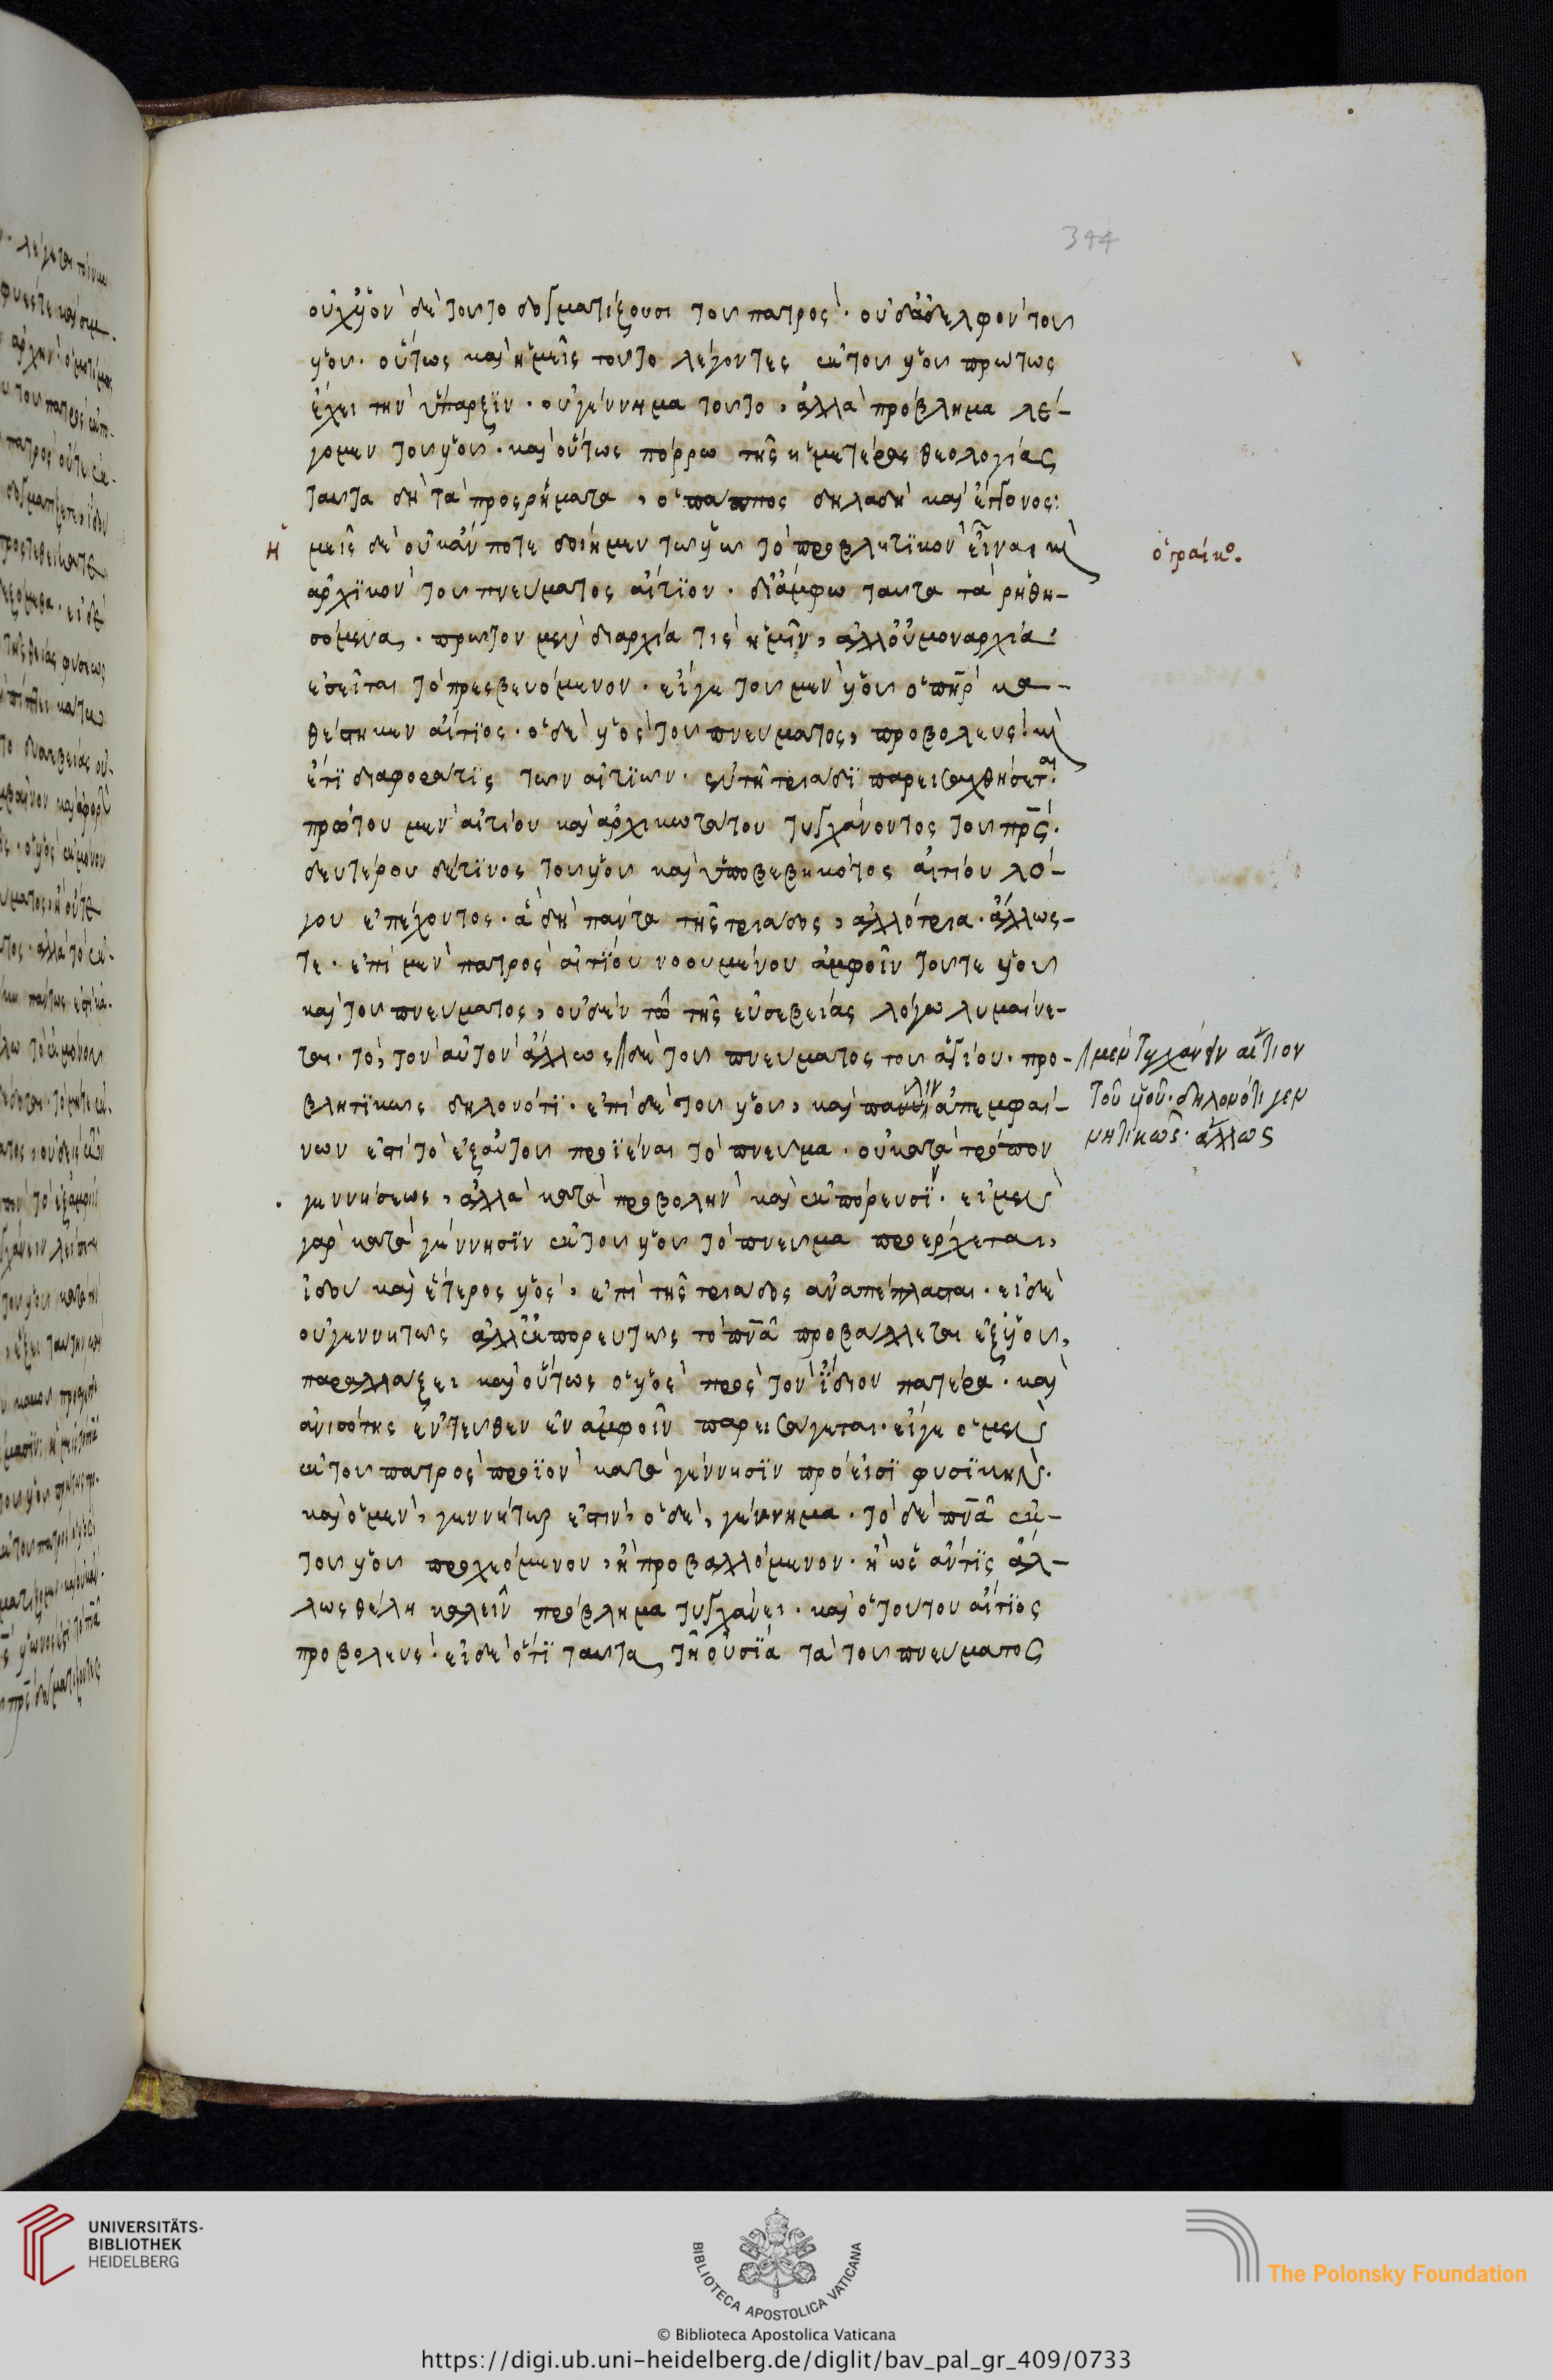 344
οὐχ υἱὸν δὲ τοῦτο δογματίζουσι τοῦ πατρός· οὐδ' ἀδελφὸν τοῦ
υἱοῦ· οὕτως καὶ ἡμεῖς τοῦτο λέγοντες ἐκ τοῦ υἱοῦ πρώτως
ἔχει τὴν ὕπαρξιν· οὐ γέννημα τοῦτο, ἀλλὰ πρόβλημα λέ-
γομεν τοῦ υἱοῦ· καὶ οὕτως πόρρω τῆς ἡμετέρας θεολογίας
ταῦτα δὴ τὰ προσρήματα, ὁ πάππος δηλαδὴ καὶ ἔγγονος:
ἡ μεῖς δὲ οὐκ ἄν ποτε δοίημεν τῶ υἱῶ τὸ προβλητικὸν εἶναι καὶ
ὁ γραικο.
ἀρχικὸν τοῦ πνεύματος αἴτιον· δι' ἄμφω ταῦτα τὰ ῥηθη-
σόμενα· πρῶτον μὲν διαρχία τίς ἡμῖν, ἀλλ' οὐ μοναρχία
ἐσεῖται τὸ πρεσβευόμενον· εἴγε τοῦ μὲν υἱοῦ ὁ πηρ κα-
θέστηκεν αἴτιος· ὁ δὲ υἱὸς τοῦ πνεύματος, προβολεύς· καὶ
ἔτι διαφορά τις τῶν αἰτίων· ἐν τῆ τριάδι παρεισαχθήσεται·
πρώτου μὲν αἰτίου καὶ ἀρχικωτάτου τυγχάνοντος τοῦ πρς·
δευτέρου δέ τινος τοῦ υἱοῦ καὶ ὑποβεβηκότος αἰτίου λό-
γου ἐπέχοντος· ἃ δὴ πάντα τῆς τριάδος, ἀλλότρια· ἄλλως-
τε· ἐπὶ μὲν πατρὸς αἰτίου νοουμένου ἀμφοῖν τοῦ τε υἱοῦ
καὶ τοῦ πνεύματος, οὐδὲν τῶ τῆς εὐσεβείας λόγω λυμαίνε-
ται· τὸ, τὸν αὐτὸν ἄλλως // δὲ τοῦ πνεύματος τοῦ ἁγίου· προ-
// μὲν τυγχάνειν αἴτιον
τοῦ υἱοῦ· δηλονότι γεν
νητικῶς· ἄλλως
βλητικῶς δηλονότι· ἐπὶ δὲ τοῦ υἱοῦ, καὶ πάλιν ἀπεμφαί-
νων ἐστὶ τὸ ἐξ αὐτοῦ προϊέναι τὸ πνεῦμα· οὐ κατὰ τρόπον
γεννήσεως, ἀλλὰ κατὰ προβολὴν καὶ ἐκπόρευσιν· εἰ μὲν
γὰρ κατὰ γέννησιν ἐκ τοῦ υἱοῦ τὸ πνεῦμα προέρχεται,
ἰδοὺ καὶ ἕτερος υἱός, ἐπὶ τῆς τριάδος ἀναπέπλασται· εἰ δὲ
οὐ γεννητῶς ἀλλ' ἐκπορευτῶς τὸ πνα προβάλλεται ἐξ υἱοῦ,
παραλλάξει καὶ οὕτως ὁ υἱὸς πρὸς τὸν ἴδιον πατέρα· καὶ
ἀνισότης ἐντεῦθεν ἐν ἀμφοῖν παρεισάγεται· εἴγε ὁ μὲν
ἐκ τοῦ πατρὸς προϊὸν κατὰ γέννησιν πρόεισι φυσικὴν·
καὶ ὁ μὲν, γεννήτωρ ἐστίν, ὁ δὲ, γέννημα· τὸ δὲ πνα ἐκ-
τοῦ υἱοῦ προχεόμενον, ἢ προβαλλόμενον· ἢ ὡς ἄν τις ἄλ-
λως θέλη καλεῖν πρόβλημα τυγχάνει· καὶ ὁ τούτου αἴτιος
προβολεύς· εἰ δὲ ὅτι ταῦτα τῆ οὐσία τὰ τοῦ πνεύματος
UNIVERSITÄTS-
BIBLIOTHEK
HEIDELBERG
BIBLIOTECA APOSTOLICA VATICANA
The Polonsky Foundation
© Biblioteca Apostolica Vaticana
https://digi.ub.uni-heidelberg.de/diglit/bav_pal_gr_409/0733